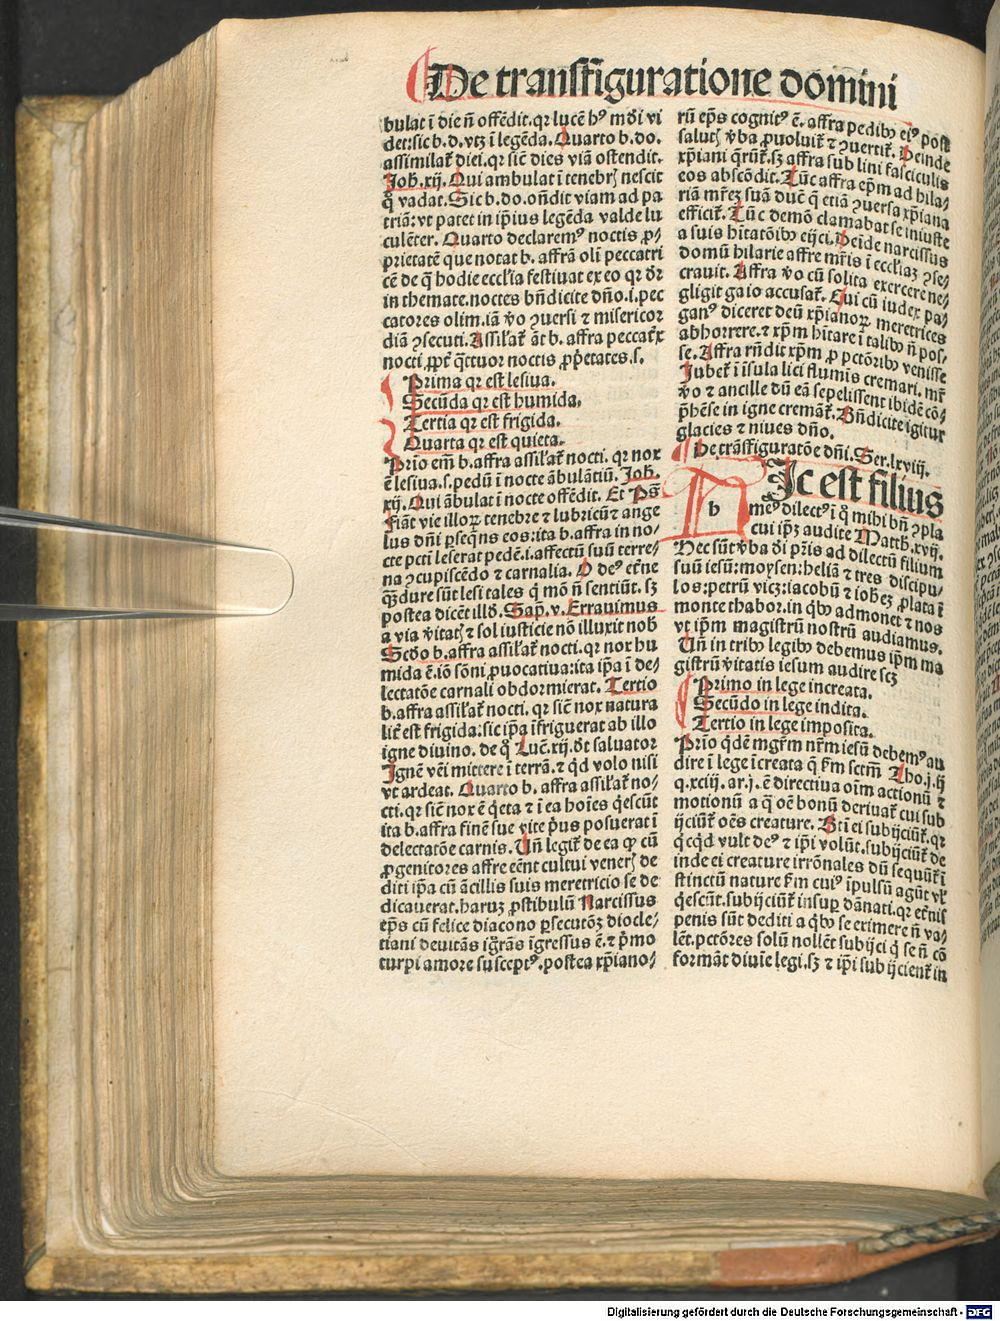 De transfiguratione domini
bulat ī die nō offēdit. qr lucē hꝰ mūdi vi
det: sic b. d. vtꝫ ī legēda. Quarto b. do.
assimilat̄ diei. qr sic̄ dies viā ostendit.
Joh̄. xij. Qui ambulat ī tenebrꝭ nescit
q̊ vadat. Sic b. do. on̄dit viam ad pa
triā: vt patet in ip̄ius legēda valde lu
culēter. Quarto declaremꝰ noctis ꝓ⸗
prietatē que notat b. affrā oli peccatri
cē de q̄ hodie eccl̄ia festiuat ex eo qr dr̄
in themate. noctes bn̄dicite dn̄o. i. pec
catores olim. iā v̊o ꝯuersi ⁊ misericor
diā ꝯsecuti. Assil̄at̄ āt b. affra peccat̄x
nocti ꝓpt̄ q̄ttuor noctis ꝓp̄etates. s.
Prima qr est lesiua.
Secūda qr est humida.
Tertia qr est frigida.
Quarta qr est quieta.
Prīo em̄ b. affra assil̄at̄ nocti. qr nox
ē lesiua. s. pedū ī nocte ābulātiū. Joh̄.
xij. Qui ābulat ī nocte offēdit. Et Ps̄
Fiāt vie illoꝝ tenebre ⁊ lubricū ⁊ ange
lus dn̄i ꝑseqn̄s eos: ita b. affra in no⸗
cte pcti leserat pedē. i. affectū suū terre⸗
na ꝯcupiscēdo ⁊ carnalia. O deꝰ et̄ne
q̄ꝫ dure sūt lesi tales q̄ mō nō sentiūt. sꝫ
postea dicēt illd̄. Sap̄. v. Errauimus
a via v̄itatꝭ ⁊ sol iusticie nō illuxit nob̄
Scd̄o b. affra assil̄at̄ nocti. qr nox hu
mida ē. iō sōni ꝓuocatiua: ita ip̄a ī de⸗
lectatōe carnali obdormierat. Tertio
b. affra assil̄at̄ nocti. qr sic̄ nox natura
lit̄ est frigida: sic ip̄a īfriguerat ab illo
igne diuino. de q̊ Luē. xij. dt̄ saluator
Ignē vēi mittere ī terrā. ⁊ qd volo nisi
vt ardeat. Quarto b. affra assil̄at̄ no⸗
cti. qr sic̄ nox ē q̄eta ⁊ ī ea hoīes q̄escūt
ita b. affra finē sue vite p̄us posuerat ī
delectatōe carnis. Un̄ legit̄ de ea ꝙ cū
ꝓgenitores affre eēnt cultui venerꝭ de
diti ip̄a cū ācillis suis meretricio se de
dicauerat. haruꝫ ꝓstibulū Narcissus
ep̄s cū felice diacono ꝑsecutōꝫ diocle⸗
tiani deuitās ig̊rās īgressus ē. ⁊ p̄mo
turpi amore susceptꝰ. postea xp̄iano⸗
rū ep̄s cognitꝰ ē. affra pedibꝰ eiꝰ post
salutꝭ v̄ba ꝓuoluit̄ ⁊ ꝯuertit̄. Deinde
xp̄iani q̄rūt̄. sꝫ affra sub lini fasciculis
eos abscōdit. Tūc affra ep̄m ad hila⸗
riā mr̄eꝫ suā duc̄ q̄ etiā ꝯuersa xp̄iana
efficit̄. Tūc demō clamabat se iniuste
a suis hītatōibꝰ eijci. Deīde narcissus
domū hilarie affre mr̄is ī eccl̄iaꝫ ꝯse⸗
crauit. Affra v̊o cū solita exercere ne⸗
gligit gaio accusat̄. Cui cū iudex pa⸗
ganꝰ diceret deū xp̄ianoꝝ meretrices
abhorrere. ⁊ xp̄m hītare ī talibꝰ nō pos⸗
se. Affra rn̄dit xp̄m ꝓ pctōribꝰ venisse
Jubet̄ ī īsula lici flumīs cremari. mr̄
v̊o ⁊ ancille dū eā sepelissent ibidē cō⸗
p̄hēse in igne cremāt̄. Bn̄dicite igitur
glacies ⁊ niues dn̄o.
De trāsfiguratōe dn̄i. Ser. lxviij.
h Ic est filius
meꝰ dilectꝰ ī q̊ mihi bn̄ ꝯpla
cui ip̄ꝫ audite Matth. xvij.
Hec sūt v̄ba dī pr̄is ad dilectū filium
suū iesū: moysen: heliā ⁊ tres discipu⸗
los: petrū vicꝫ: iacobū ⁊ ioh̄eꝫ ꝓlata ī
monte thabor. in qbꝰ admonet ⁊ nos
vt ip̄m magistrū nostrū audiamus.
Un̄ in tribꝰ legibꝰ debemus ip̄m ma
gistrū v̄itatis iesum audire scꝫ
Primo in lege increata.
Secūdo in lege indita.
Tertio in lege imposita.
Prīo q̄dē mgr̄m nr̄m iesū debemꝰ au
dire ī lege īcreata q̄ ẜm sctm̄ Tho. j. ij
q. xciij. ar. j. ē directiua oīm actionū ⁊
motionū a q̄ oē bonū deriuat̄ cui sub
ijciūt̄ oēs creature. Bti ei subijciūt̄. qr
q̊cqd vult deꝰ ⁊ ip̄i volūt. subijciūt̄ de
inde ei creature irrōnales dū sequūt̄ ī
stinctū nature ẜm cuiꝰ īpulsū agūt vl̄
q̄escūt. subijciūt̄ insuꝑ dānati. qr et̄nis
penis sūt dediti a qbꝰ se eximere nō va⸗
lēt. pctōres solū nollēt subijci q̄ se nō cō
formāt diuīe legi. sꝫ ⁊ ip̄i subijcient̄ in
Digitalisierung gefördert durch die Deutsche Forschungsgemeinschaft - DFG